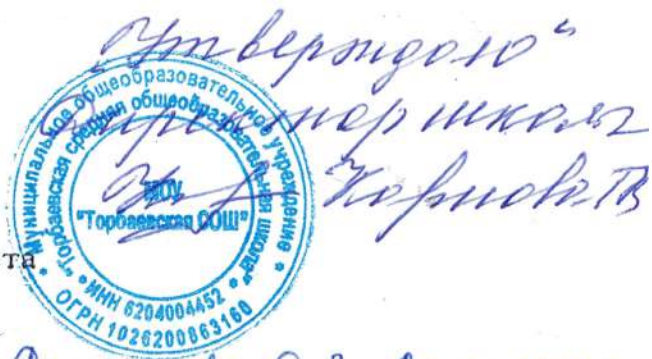 „Утверждаю“
Директор школы
Муниципальное общеобразовательное учреждение
"Торбаевская средняя общеобразовательная школа"
МОУ
"Торбаевская СОШ"
* ИНН 6204004452 *
* ОГРН 1026200863160 *
та